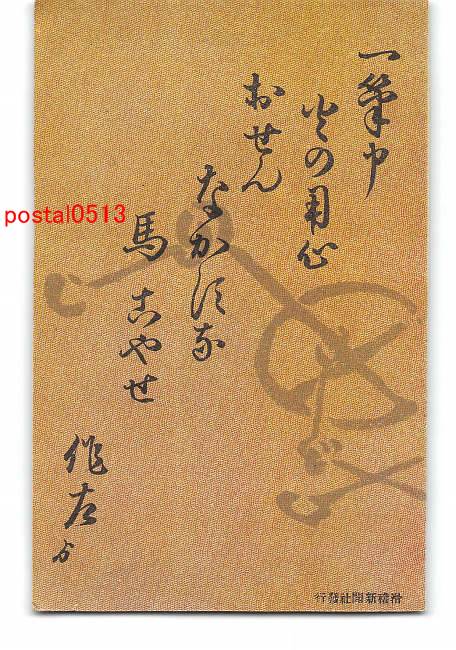 一筆申
火の用心
おせん
なかすな
馬こやせ
作左ゟ
滑稽新聞社發行
postal0513